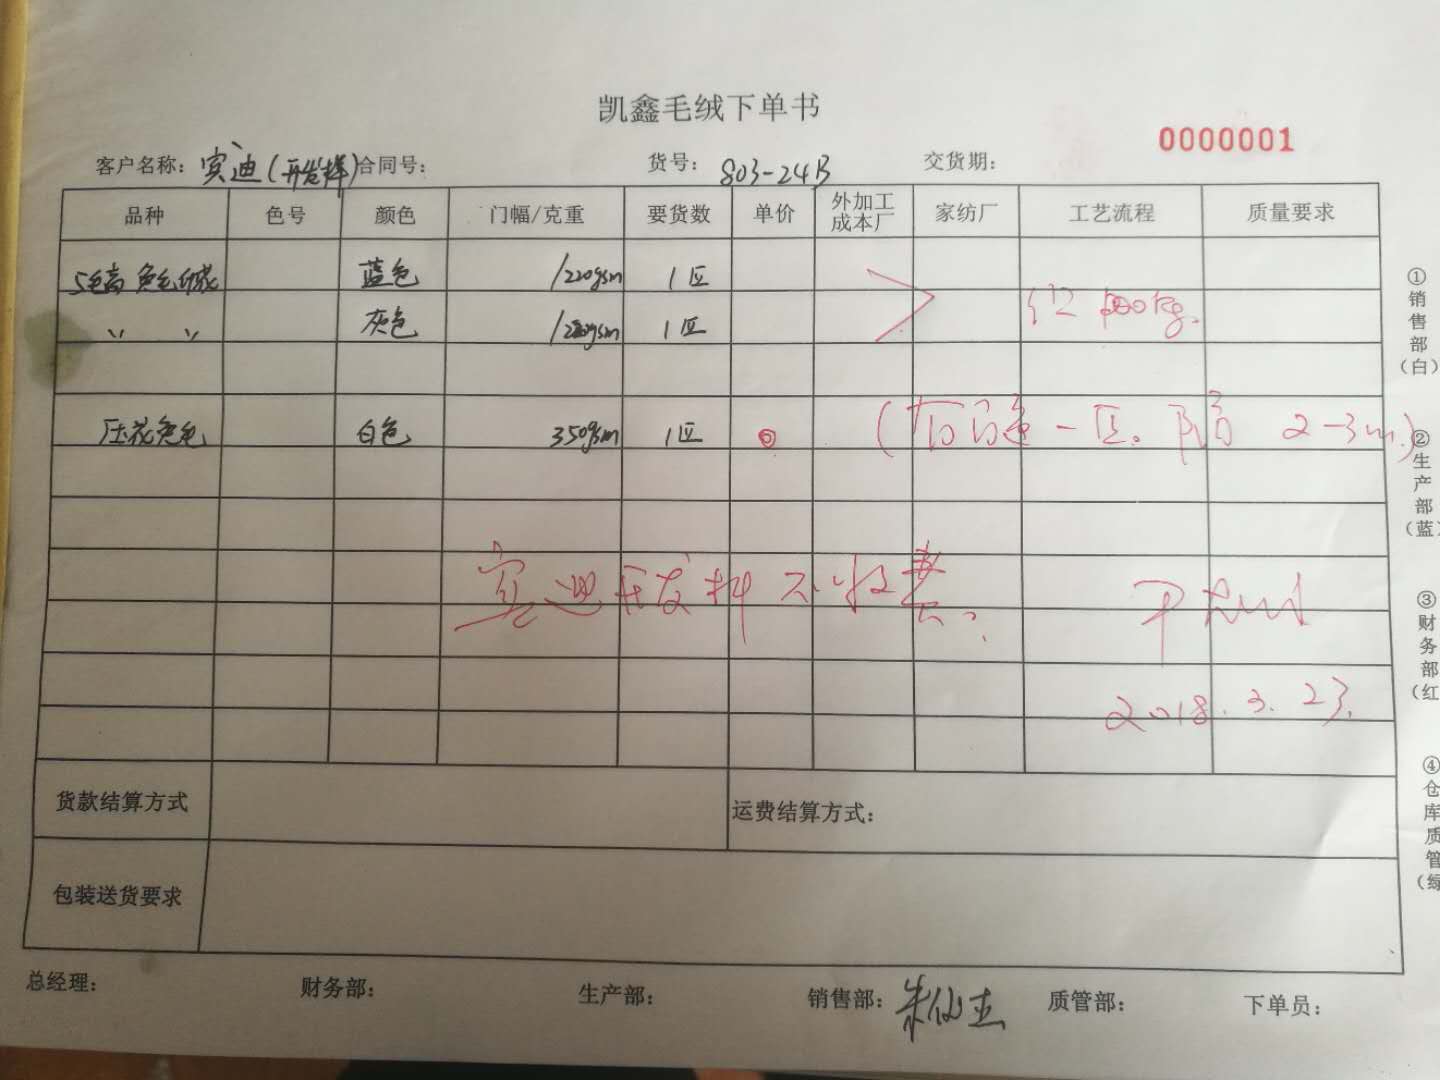 凯鑫毛绒下单书
0000001
客户名称: 宾迪(开发样) 合同号: 货号: 803-24B 交货期:
品种 色号 颜色 门幅/克重 要货数 单价 外加工成本厂 家纺厂 工艺流程 质量要求
蓝色 /220gsm 1匹
〃 〃 灰色 /220gsm 1匹
压花兔毛 白色 350gsm 1匹
2-3m.)
宾迪开发样不收费.
2018.3.23.
货款结算方式 运费结算方式:
包装送货要求
总经理: 财务部: 生产部: 销售部: 质管部: 下单员:
①销售部(白)
②生产部(蓝)
③财务部(红
④仓库质管(绿